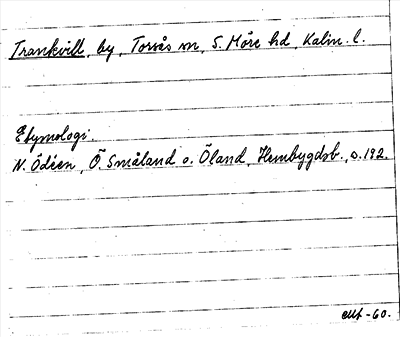 Trankvill, by, Torsås sn, S. Möre hd, Kalm. l.
Etymologi.
N. Ödéen, Ö. Småland o. Öland, Hembygdsb., s. 192.
-60.